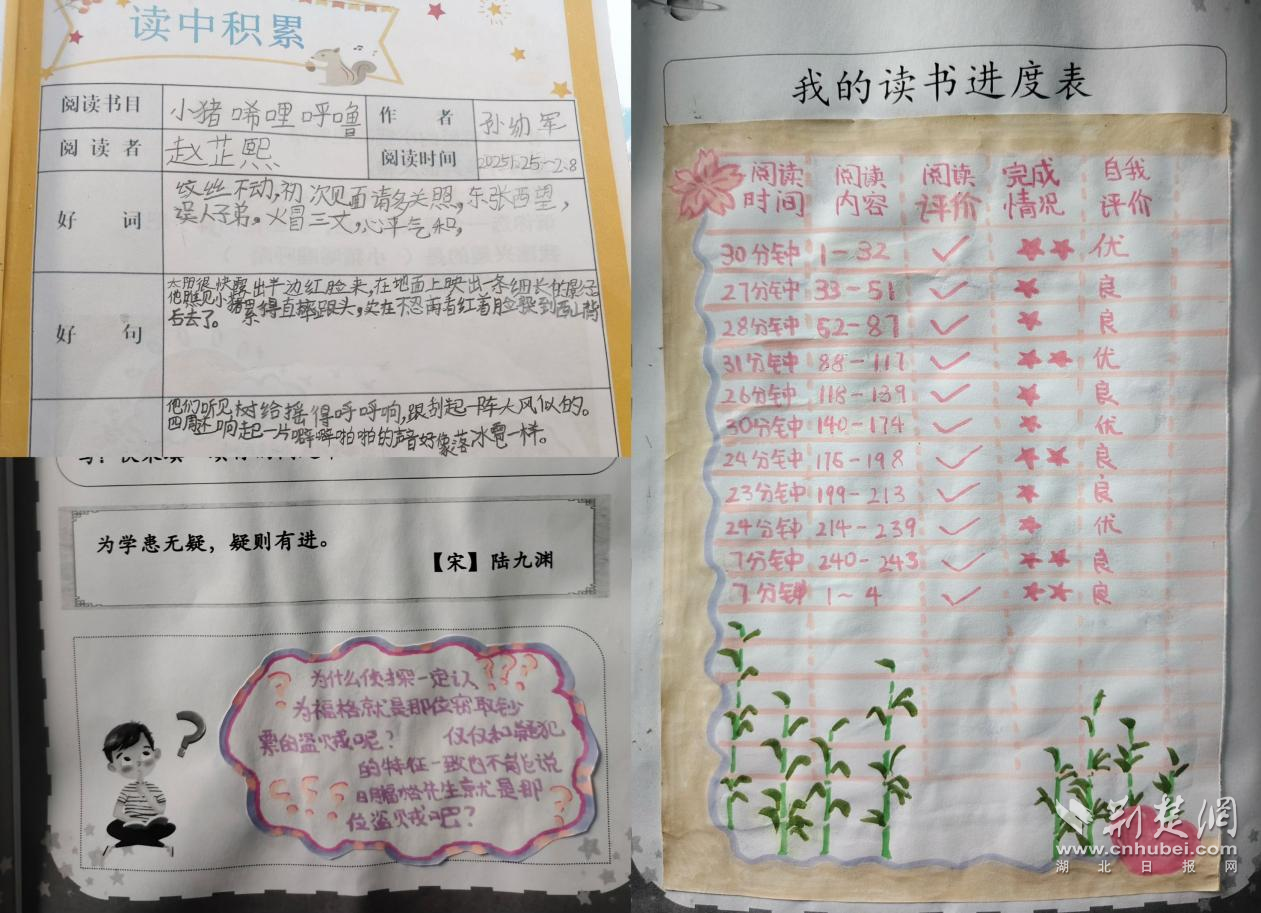 读中积累
阅读书目 小猪唏哩呼噜 作者 孙幼军
阅读者 赵芷熙 阅读时间 2025.1.25—2.8
好词 纹丝不动,初次见面请多关照,东张西望,
误人子弟。火冒三丈,心平气和,
好句 太阳很快露出半边红脸来,在地面上映出一条细长的影子
他瞧见小猪累得直摔跟头,实在不忍再看红着脸躲到西山背
后去了。
他们听见树给摇得呼呼响,跟刮起一阵大风似的。
四周还响起一片噼噼啪啪的声音好像落冰雹一样。
为学患无疑,疑则有进。
【宋】陆九渊
为什么侦探一定认
为福格就是那位窃取钞
票的盗贼呢? 仅仅和疑犯
的特征一致也不能说
明福格先生就是那
位盗贼吧?
我的读书进度表
阅读时间 阅读内容 阅读评价 完成情况 自我评价
30分钟 1-32 ✓ ★★ 优
27分钟 33-51 ✓ ★ 良
28分钟 52-87 ✓ ★ 良
31分钟 88-117 ✓ ★★ 优
26分钟 118-139 ✓ ★ 良
30分钟 140-174 ✓ ★ 优
24分钟 175-198 ✓ ★★ 良
23分钟 199-213 ✓ ★ 良
24分钟 214-239 ✓ ★ 优
7分钟 240-243 ✓ ★★ 良
7分钟 1~4 ✓ ★★ 良
荆楚网
www.cnhubei.com
湖北日报网